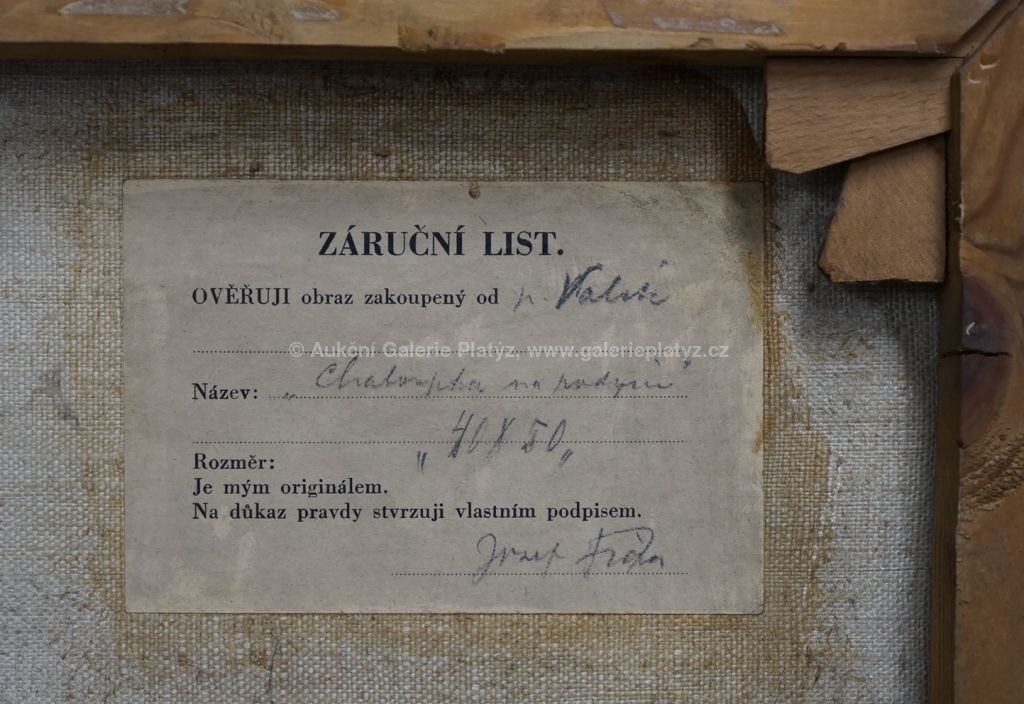 ZÁRUČNÍ LIST.
OVĚŘUJI obraz zakoupený od p.
© Aukční Galerie Platýz, www.galerieplatyz.cz
Název: „Chaloupka na podzim"
„40X50„
Rozměr:
Je mým originálem.
Na důkaz pravdy stvrzuji vlastním podpisem.
Josef